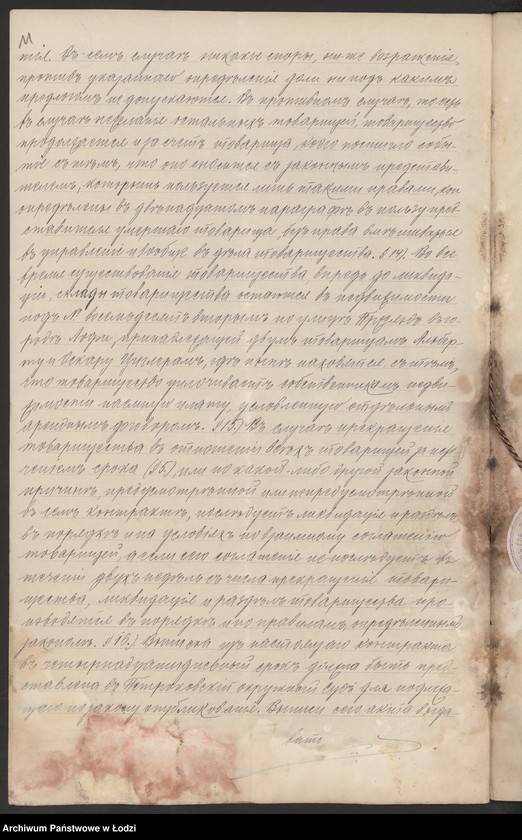 тія. Въ семъ случаѣ никакіе споры, ни-же возраженія,
противъ указаннаго опредѣленія доли ни подъ какимъ
предлогомъ не допускаются. Въ противномъ случаѣ, то есть
въ случаѣ нежеланія остальныхъ товарищей, товарищество
продолжается и за счетъ товарища, коего постигло собы-
тіе съ тѣмъ, что оно сносится съ законнымъ представи-
телемъ, который пользуется лишь такими правами, кои
опредѣлены въ двѣнадцатомъ параграфѣ въ пользу пред-
ставителя умершаго товарища, безъ права вмѣшиваться
въ управленіе и вообще въ дѣла товарищества. § 14) Во все
время существованія товарищества, впредь до ликвида-
ціи, склады товарищества остаются въ недвижимости
подъ № восемьдесятъ вторымъ по улицѣ въ го-
родѣ Лодзи, принадлежащей двумъ товарищамъ Альбер-
ту и Оскару Циглерамъ, гдѣ нынѣ находятся, съ тѣмъ,
что товарищество уплачиваетъ собственникамъ недви-
жимости наемную плату, условленную отдѣльнымъ
аренднымъ договоромъ. § 15) Въ случаѣ прекращенія
товарищества въ отношеніи всѣхъ товарищей за исте-
ченіемъ срока (§ 5), или по какой-либо другой законной
причинѣ, предусмотрѣнной или непредусмотрѣнной
въ семъ контрактѣ, послѣдуетъ ликвидація и раздѣлъ
въ порядкѣ и на условіяхъ по взаимному соглашенію
товарищей, а если сего соглашенія не послѣдуетъ въ
теченіи двухъ недѣль съ числа прекращенія товари-
щества, ликвидація и раздѣлъ товарищества про-
изводятся въ порядкѣ и по правиламъ опредѣленнымъ
закономъ. § 16.) Выписка изъ настоящаго контракта
въ четырнадцатидневный срокъ должна быть пред-
ставлена въ Петроковскій окружный судъ для
по закону опубликованія. Выписи сего акта выда-
вать
Archiwum Państwowe w Łodzi